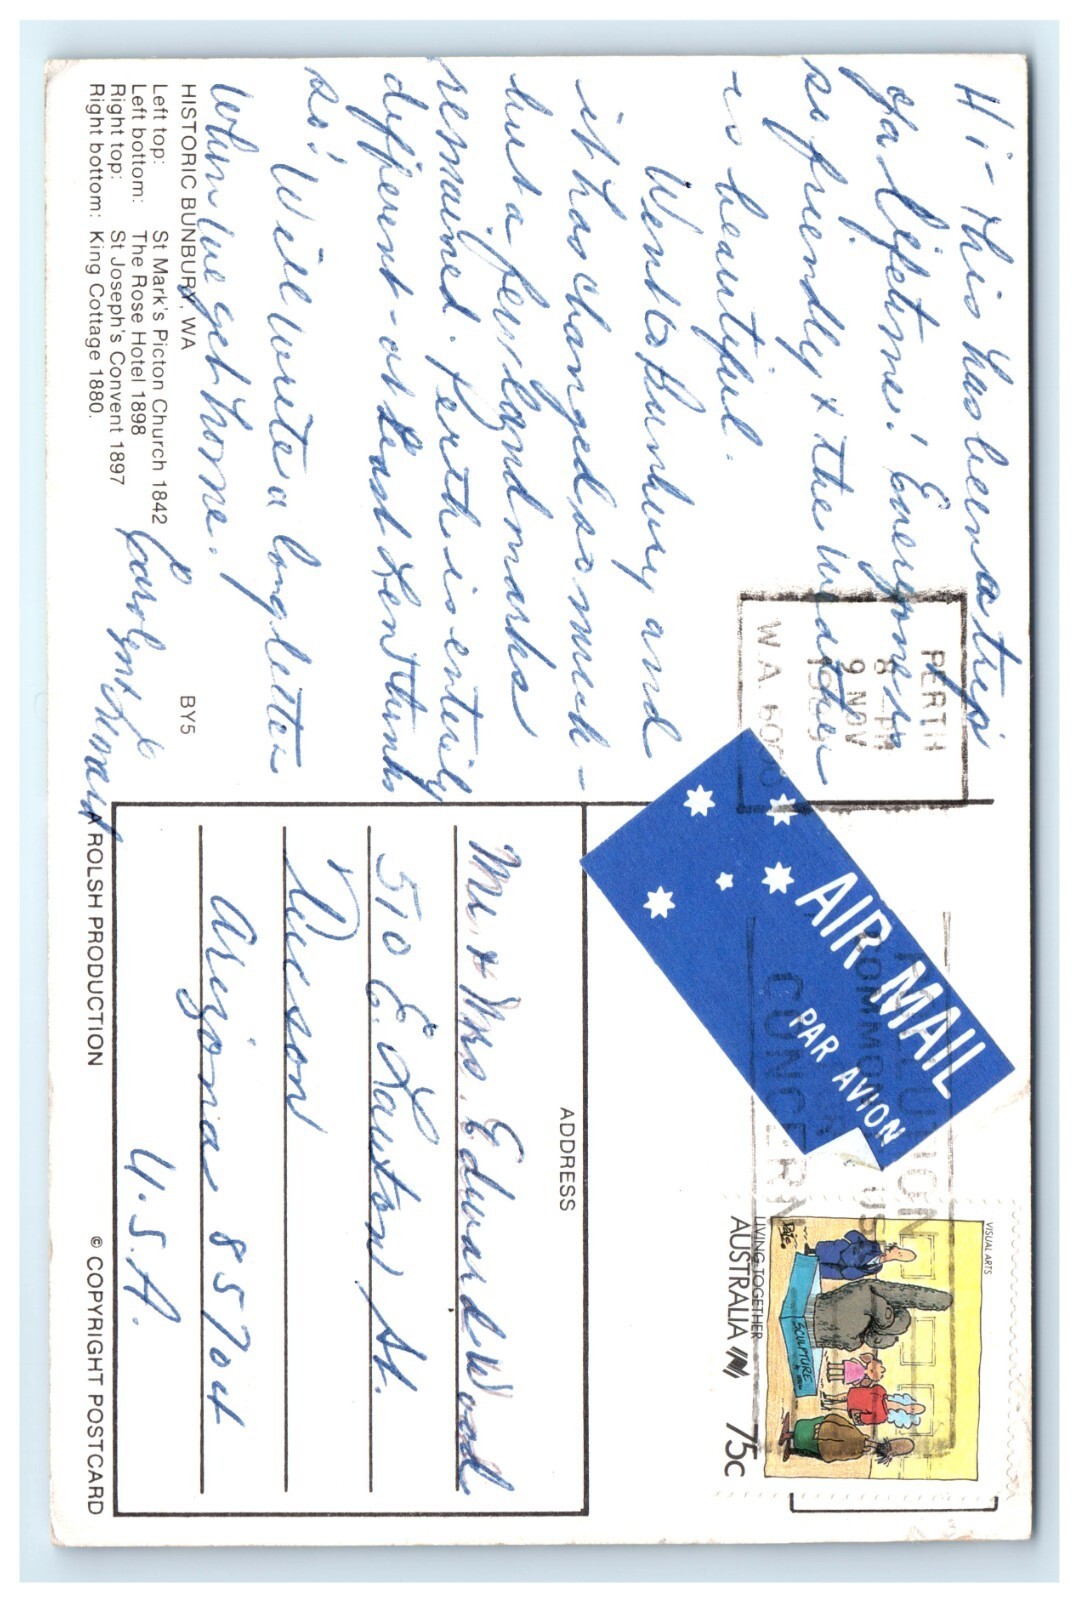 Hi - This has been a trip
of a lifetime! Everyone is
so friendly & the weather
is beautiful.
Went to Bunbury and
it has changed so much -
but a few landmarks
remained. Perth is entirely
different - or at least
so! Will write a long letter
When we get home.
HISTORIC BUNBURY, WA
Left top: St Mark's Picton Church 1842
Left bottom: The Rose Hotel 1898
Right top: St Joseph's Convent 1897
Right bottom: King Cottage 1880.
BY5
A ROLSH PRODUCTION
© COPYRIGHT POSTCARD
PERTH
8 PM
9 NOV
W.A.
AIR MAIL
PAR AVION
POLLUTION
COMMON
CONCERN
VISUAL ARTS
SCULPTURE
LIVING TOGETHER
AUSTRALIA 75c
ADDRESS
Mr. & Mrs. Edward Wood
510 E. Lawton St.
Tucson
Arizona 85704
U.S.A.